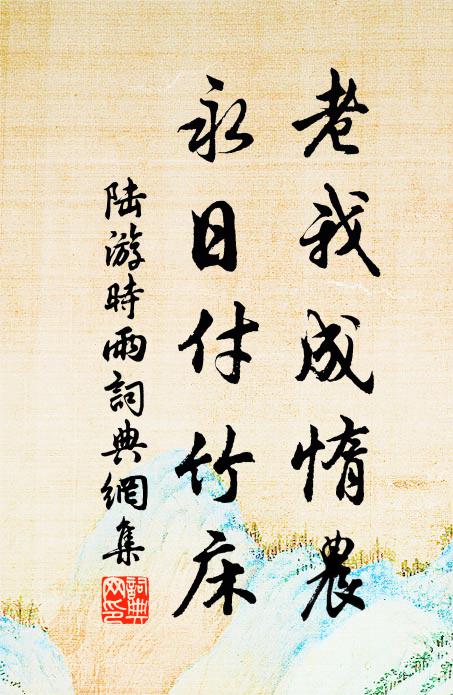 老我成惰農
永日付竹床
陸游時雨詞典網集
詞典網印